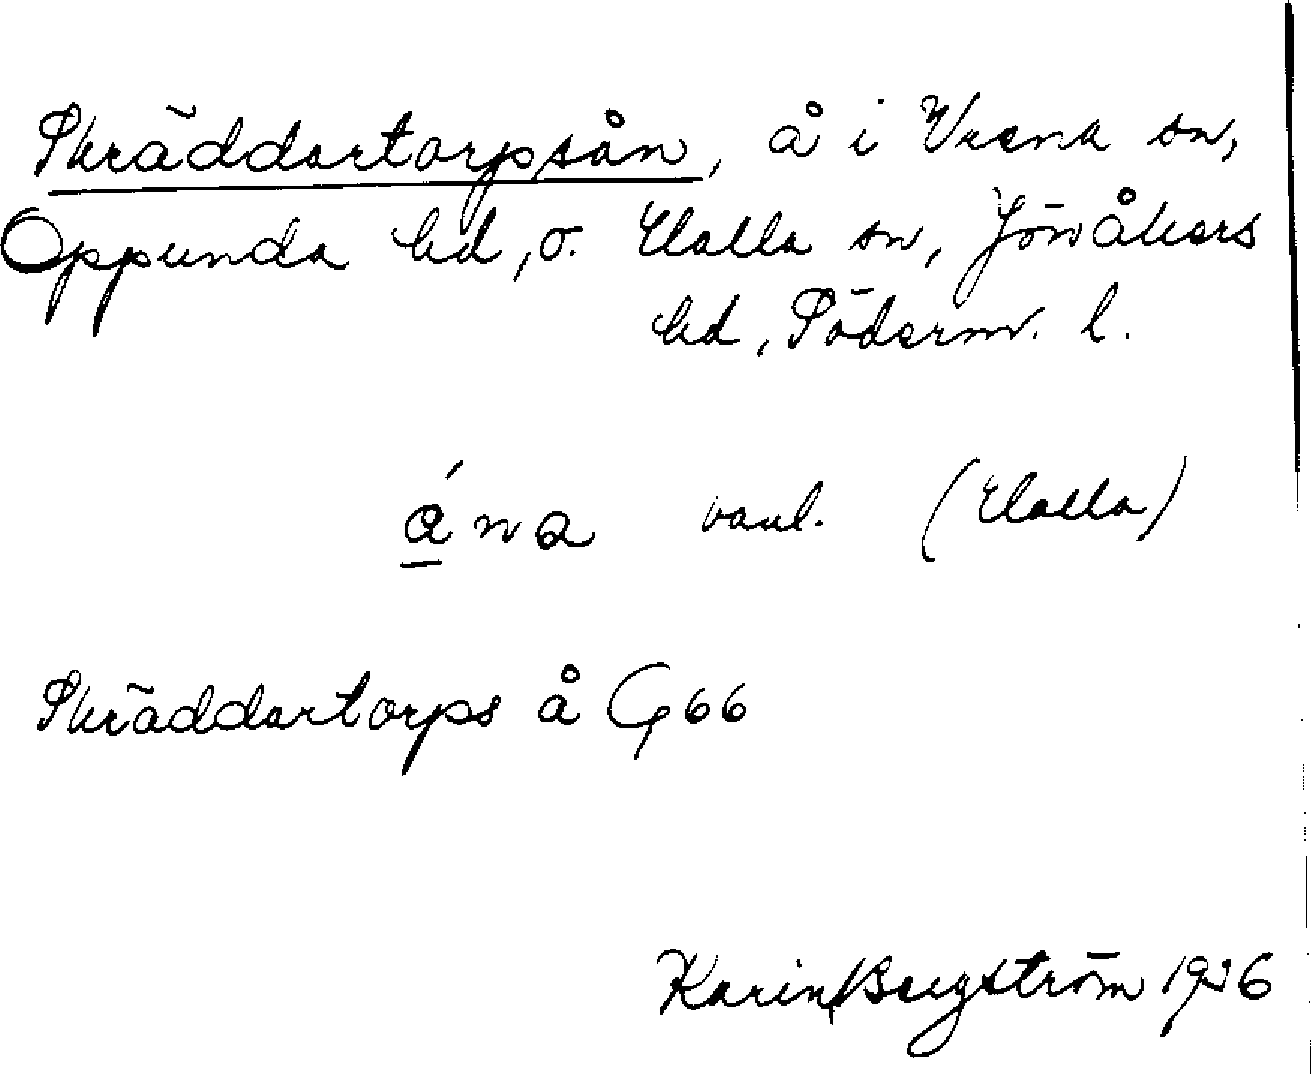 Skräddartorpsån, å i Vrena sn,
Oppunda hd, o. Halla sn, Jönåkers
hd, Söderm. l.
á̱na vanl. (Halla)
Skräddartorps å G 66
Karin Bergström 1936